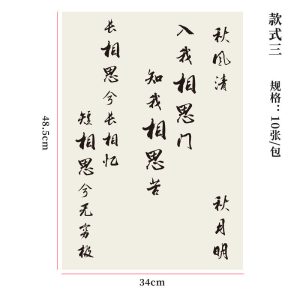 款式三
规格：10张/包
秋风清
秋月明
入我相思门
知我相思苦
长相思兮长相忆
短相思兮无穷极
48.5cm
34cm